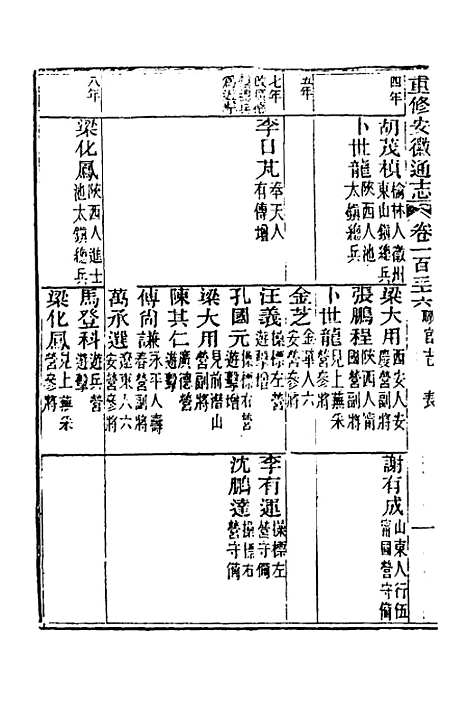 重修安徽通志 卷一百三十六 職官志 表 一
四年
胡茂楨 榆林人徽州
東山鎮總兵
卜世龍 陝西人池
太鎮總兵
梁大用 西安人安
慶營副將
張鵬程 陝西人甯
國營副將
卜世龍 見上蕪采
營參將
謝有成 山東人行伍
甯國營守備
五年
金芝 金華人六
安營參將
七年
李日芃 奉天人
有傳增
汪義 操標左營
遊擊增
孔國元 操標右營
遊擊增
梁大用 見前潛山
營副將
陳其仁 廣德營
遊擊
傅尚謙 永平人壽
春營副將
萬承選 遼東人六
安營參將
李有運 操標左
營守備
沈鵬達 操標右
營守備
八年
梁化鳳 陝西人進士
池太鎮總兵
馬登科 遊兵營
遊擊
梁化鳳 見上蕪采
營參將